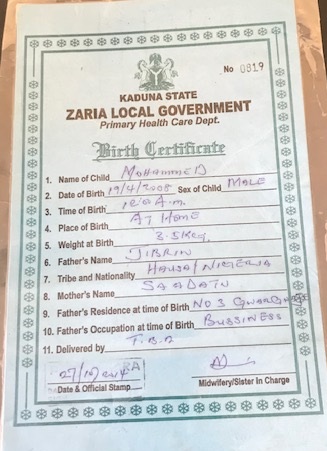 No 0819
KADUNA STATE
ZARIA LOCAL GOVERNMENT
Primary Health Care Dept.
Birth Certificate
1. Name of Child MOHAMMED
2. Date of Birth 19/4/2008 Sex of Child MALE
3. Time of Birth A.m.
4. Place of Birth AT HOME
5. Weight at Birth 3.5kg
6. Father's Name JIBRIN
7. Tribe and Nationality HAUSA/NIGERIA
8. Mother's Name SAADATU
9. Father's Residence at time of Birth NO 3
10. Father's Occupation at time of Birth BUSSINESS
11. Delivered by T.B.A
Date & Official Stamp
Midwifery/Sister In Charge